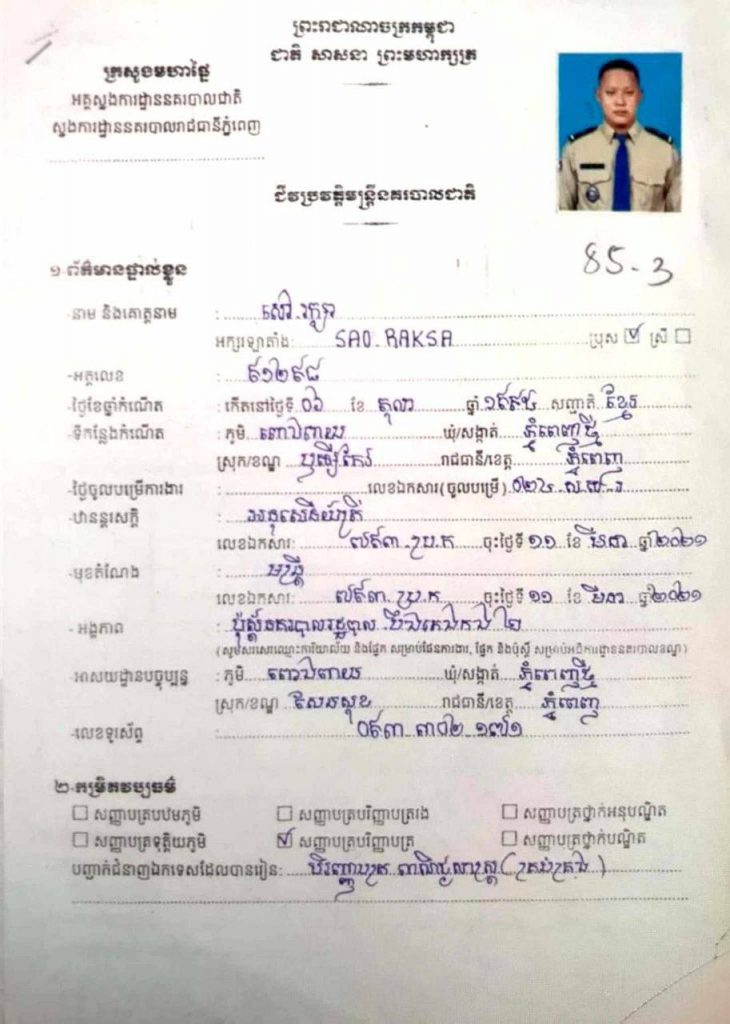 ព្រះរាជាណាចក្រកម្ពុជា
ជាតិ សាសនា ព្រះមហាក្សត្រ
ក្រសួងមហាផ្ទៃ
អគ្គស្នងការដ្ឋាននគរបាលជាតិ
ស្នងការដ្ឋាននគរបាលរាជធានីភ្នំពេញ
ជីវប្រវត្តិមន្ត្រីនគរបាលជាតិ
85-3
១-ព័ត៌មានផ្ទាល់ខ្លួន
-នាម និងគោត្តនាម : សៅ រក្សា
អក្សរឡាតាំង: SAO RAKSA ប្រុស ស្រី
-អត្តលេខ : ៩១២៩៨
-ថ្ងៃខែឆ្នាំកំណើត : កើតនៅថ្ងៃទី ០៦ ខែ តុលា ឆ្នាំ ១៩៩៥ សញ្ជាតិ ខ្មែរ
-ទីកន្លែងកំណើត : ភូមិ ពោងពាយ ឃុំ/សង្កាត់ ភ្នំពេញថ្មី
ស្រុក/ខណ្ឌ ឫស្សីកែវ រាជធានី/ខេត្ត ភ្នំពេញ
-ថ្ងៃចូលបម្រើការងារ : លេខឯកសារ(ចូលបម្រើ)
-ឋានន្តរសក្តិ : អនុសេនីយ៍ត្រី
លេខឯកសារ: ៧៩៣ ប្រ.ក ចុះថ្ងៃទី ១១ ខែ មីនា ឆ្នាំ ២០២១
-មុខតំណែង : មន្ត្រី
លេខឯកសារ: ៧៩៣ ប្រ.ក ចុះថ្ងៃទី ១១ ខែ មីនា ឆ្នាំ ២០២១
- អង្គភាព : ប៉ុស្តិ៍នគរបាលរដ្ឋបាល បឹងកេងកង ២
(សូមសរសេរឈ្មោះការិយាល័យ និងផ្នែក សម្រាប់ផែនការងារ, ផ្នែក និងប៉ុស្តិ៍ សម្រាប់អធិការដ្ឋាននគរបាលខណ្ឌ)
-អាសយដ្ឋានបច្ចុប្បន្ន : ភូមិ ពោងពាយ ឃុំ/សង្កាត់ ភ្នំពេញថ្មី
ស្រុក/ខណ្ឌ សែនសុខ រាជធានី/ខេត្ត ភ្នំពេញ
-លេខទូរស័ព្ទ : ០៩៣ ៣០២ ១៧១
២-កម្រិតវប្បធម៌
សញ្ញាបត្របឋមភូមិ សញ្ញាបត្របរិញ្ញាបត្ររង សញ្ញាបត្រថ្នាក់អនុបណ្ឌិត
សញ្ញាបត្រទុតិយភូមិ សញ្ញាបត្របរិញ្ញាបត្រ សញ្ញាបត្រថ្នាក់បណ្ឌិត
បញ្ជាក់ជំនាញឯកទេសដែលបានរៀន: បរិញ្ញាបត្រ ពាណិជ្ជសាស្ត្រ (គ្រប់គ្រង)